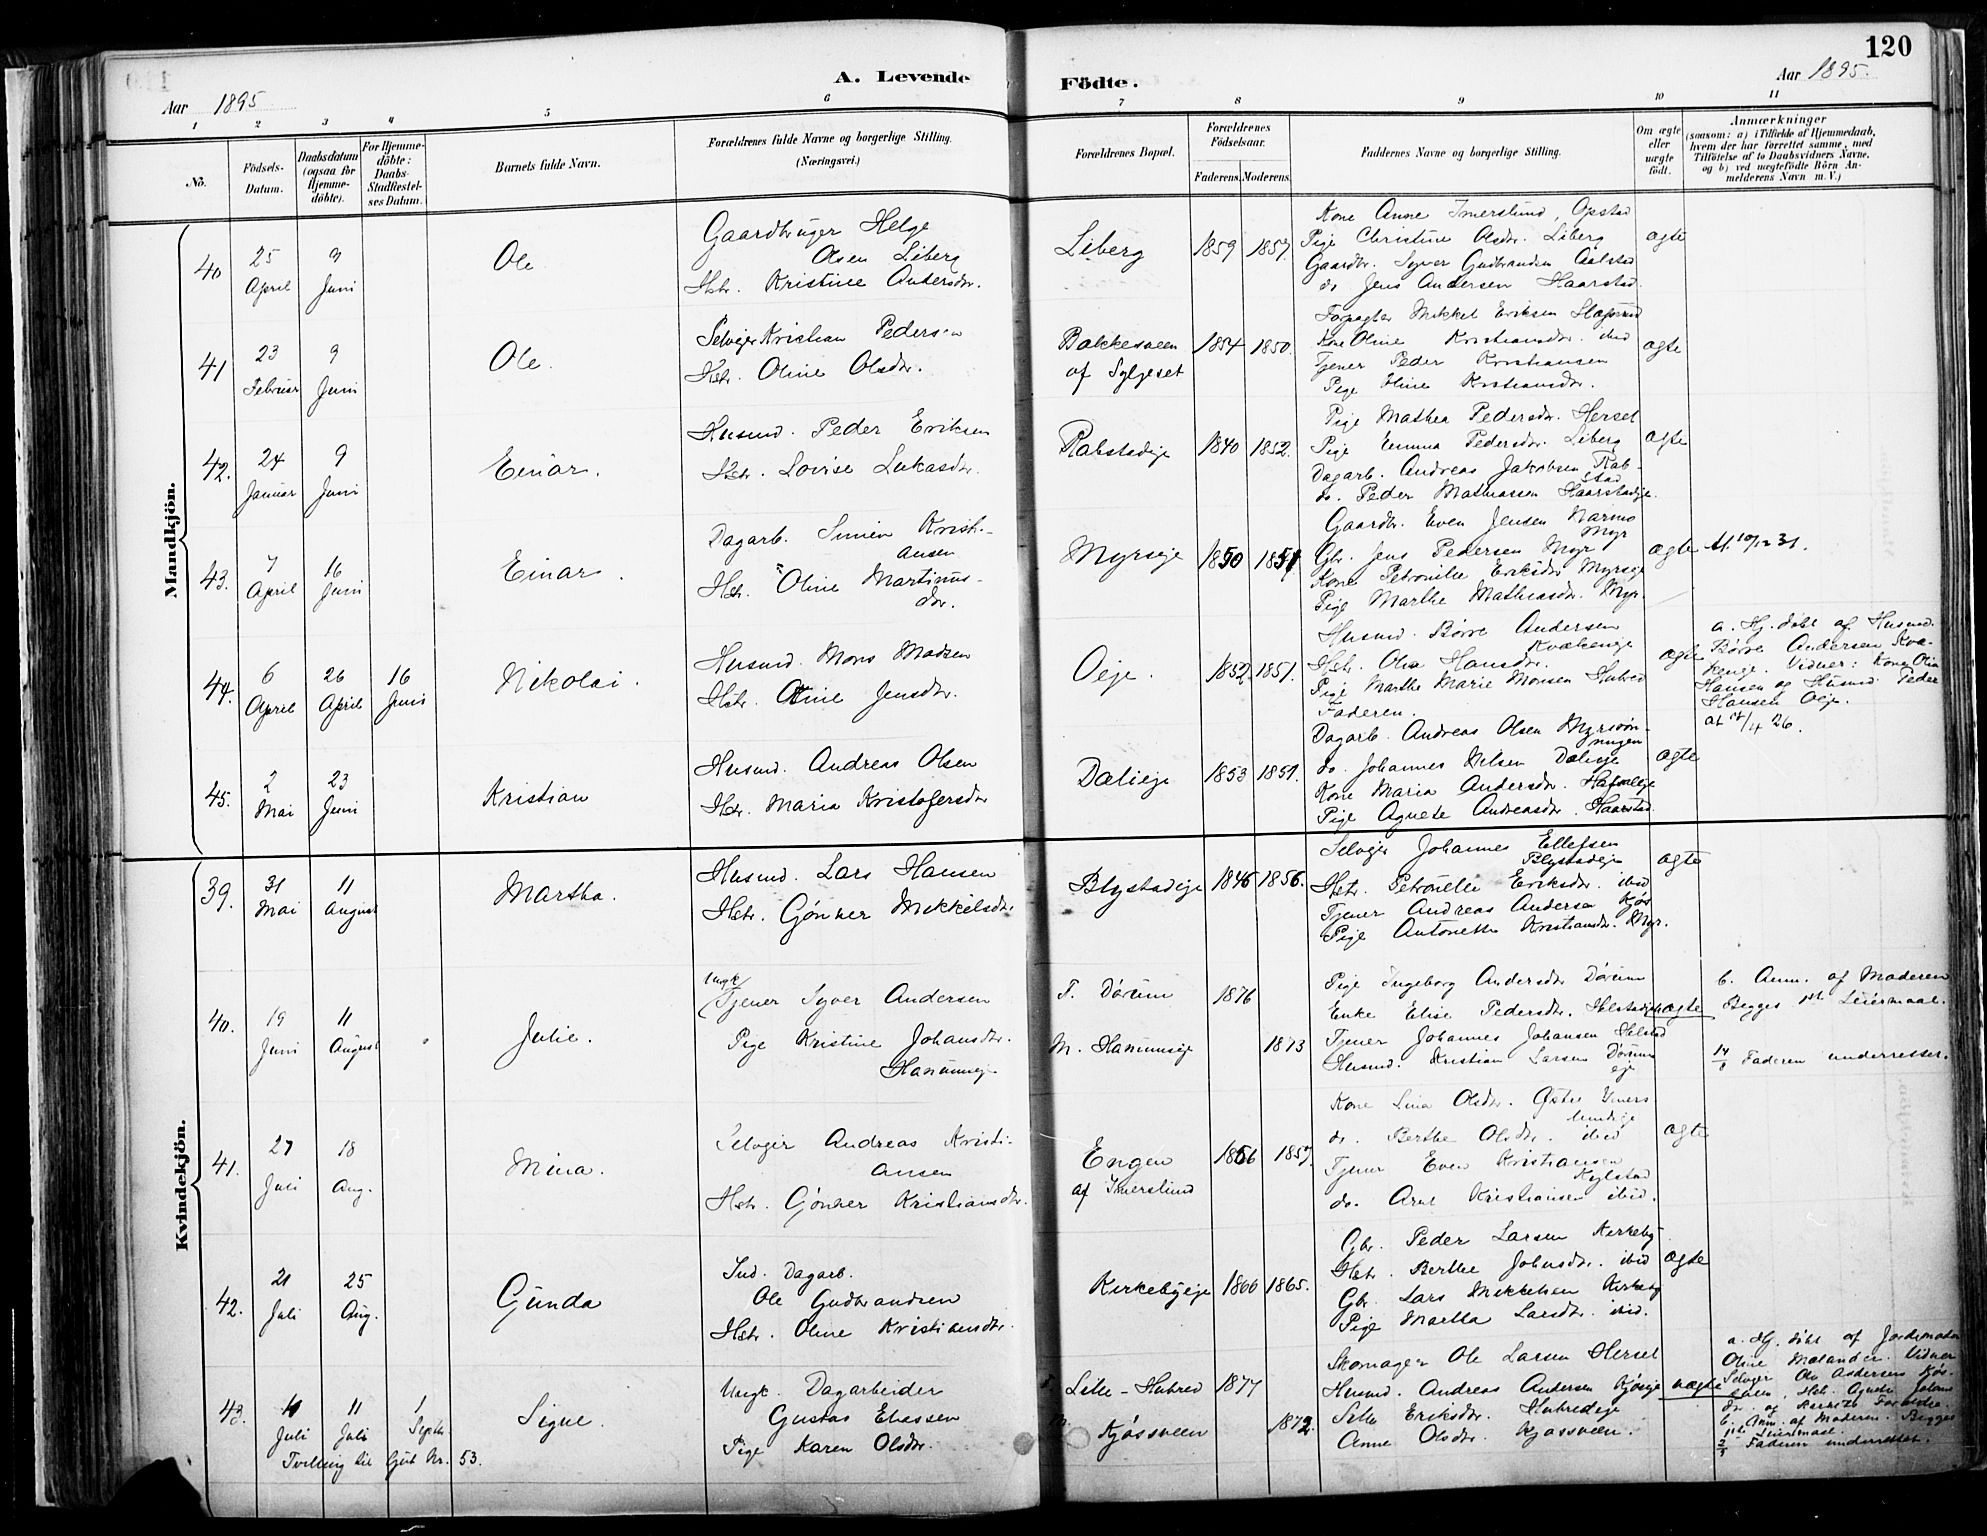 120
A. Levende Födte.
Aar 1895
Aar 1895.
1 2 3 4 5 6 7 8 9 10 11
No.
Födsels-Datum.
Daabsdatum (ogsaa for Hjemmedöbte).
For Hjemmedöbte: Daabs-Stadfæstelses Datum.
Barnets fulde Navn.
Forældrenes fulde Navne og borgerlige Stilling. (Næringsvei.)
Forældrenes Bopæl.
Forældrenes Födselsaar.
Faderens. Moderens.
Faddernes Navne og borgerlige Stilling.
Om ægte eller uægte født.
Anmærkninger (saasom: a) i Tilfælde af Hjemmedaab, hvem der har forrettet samme, med Tilföielse af to Daabsvidners Navne, og b) ved uægtefødte Börn Anmelderens Navn m. V.)
Mandkjön.
40 25 April 9 Juni Ole
Gaardbruger Helge
Olsen Liberg
Hstr. Kristine Andersdtr.
Liberg 1859 1857.
Kone Anne Imerslund, Opstad
Pige Christine Olsdtr. Liberg
Gaardbr. Syver Gudbrandsen Aalstad
do Jens Andersen Haarstad
ægte
41 23 Februar 9 Juni Ole.
Selveier Kristian Pedersen
Hstr. Oline Olsdtr.
Bakkesveen
af Syljeset
1854 1850.
Forpagter Mikkel Eriksen
Kone Oline Kristiansdtr. ibid
Tjener Peder Kristiansen
Pige Oline Kristiansdtr.
ægte
42. 24 Januar 9 Juni Einar.
Husmd. Peder Eriksen
Hstr. Lovise Lukasdtr.
Rabstadeje 1840 1852.
Pige Mathea Pedersdtr. Hersel
Pige Emma Pedersdtr. Liberg
Dagarb. Andreas Jakobsen Rabstad
do. Peder Mathiassen Haarstadeje.
ægte
43. 7 April 16 Juni Einar.
Dagarb. Simen Kristiansen
Hstr. Oline Martinusdtr.
Myrseje 1850 1851
Gaardbr. Even Jensen Narmo
Myr
Gbr. Jens Pedersen Myr
Kone Petronille Eriksdtr Myrseje
Pige Marthe Mathiasdtr. Myr.
ægte
44. 6 April 26 April 16 Juni Nikolai.
Husmd. Mons Madsen
Hstr. Oline Jensdtr.
Oeje. 1852 1851.
Husmd. Børre Andersen
Kvækeneje
Hstr. Olia Hansdtr.
Pige Marthe Marie Monsen Hubred
Faderen.
ægte
a. Hj. døbt af Husmd.
Børre Andersen Kvækeneje. Vidner: Kone Olia
Hansen og Husmd. Peder
Hansen Oeje.
45. 2 Mai 23 Juni Kristian
Husmd. Andreas Olsen
Hstr. Maria Kristofersdtr
Dælieje 1853 1851.
Dagarb. Andreas Olsen
do. Johannes Nilsen Dælieje
Kone Maria Andersdtr.
Pige Agnete Andreasdtr. Haarstad
ægte
Kvindekjön.
39. 31 Mai 11 August Martha.
Husmd. Lars Hansen
Hstr. Gønner Mikkelsdtr.
Blystadeje 1846 1856.
Selveier Johannes Ellefsen
Blystadeje
Hstr. Petronelle Eriksdtr. ibid
Tjener Andreas Andersen Kjøs
Pige Antonette Kristiansdtr. Myr.
ægte
40. 19 Juni 11 August Julie.
Ungk.
Tjener Syver Andersen
Pige Kristine Johansdtr.
Hanumseje
F. Dørum 1876
M. Hanumseje 1873
Pige Ingeborg Andersdtr Dørum
Enke Elise Pedersdtr. Helstadeje
Tjener Johannes Johansen Helstad
Husmd. Kristian Larsen Dørumseje
uægte
b. Anm. af Moderen
Begges 1ste Leiermaal.
Faderen underrettet.
41. 27 Juli 18 Aug. Mina.
Selveier Andreas Kristiansen
Hstr. Gønner Kristiansdtr.
Engen
af Imerslund
1856 1857.
Kone Lina Olsdtr. Østre Imerslundeje
do. Berthe Olsdtr. ibid
Tjener Even Kristiansen
Kylstad
do. Arne Kristiansen ibid.
ægte
42. 21 Juli 25 Aug. Gunda
Ind. Dagarb.
Ole Gudbrandsen
Hstr. Oline Kristiansdtr.
Kirkebyeje 1866 1865.
Gbr. Peder Larsen Kirkeby
Hstr. Berthe Johnsdtr. ibid
Gbr. Lars Mikkelsen Kirkeby
Pige Martha Larsdtr. ibid.
ægte
43. 11 Juli 11 Juli 1 Septbr. Signe.
Tvilling til Gut Nr. 53.
Ungk. Dagarbeider
Gustav Eliassen
Pige Karen Olsdtr.
Lille-Hubred 1877
M. Kjøssveen 1872.
Skomager Ole Larsen Hersel
Husmd. Andreas Andersen Kjøseje
Eriksdtr. Hubredeje
Anne Olsdtr. Kjøssveen.
uægte
a. Hj. døbt af Jordemoder
Oline Melander. Vidner
Selveier Ole Andersen
b. Anm. af Moderen. Begges
1ste Leiermaal.
Faderen underrettet.